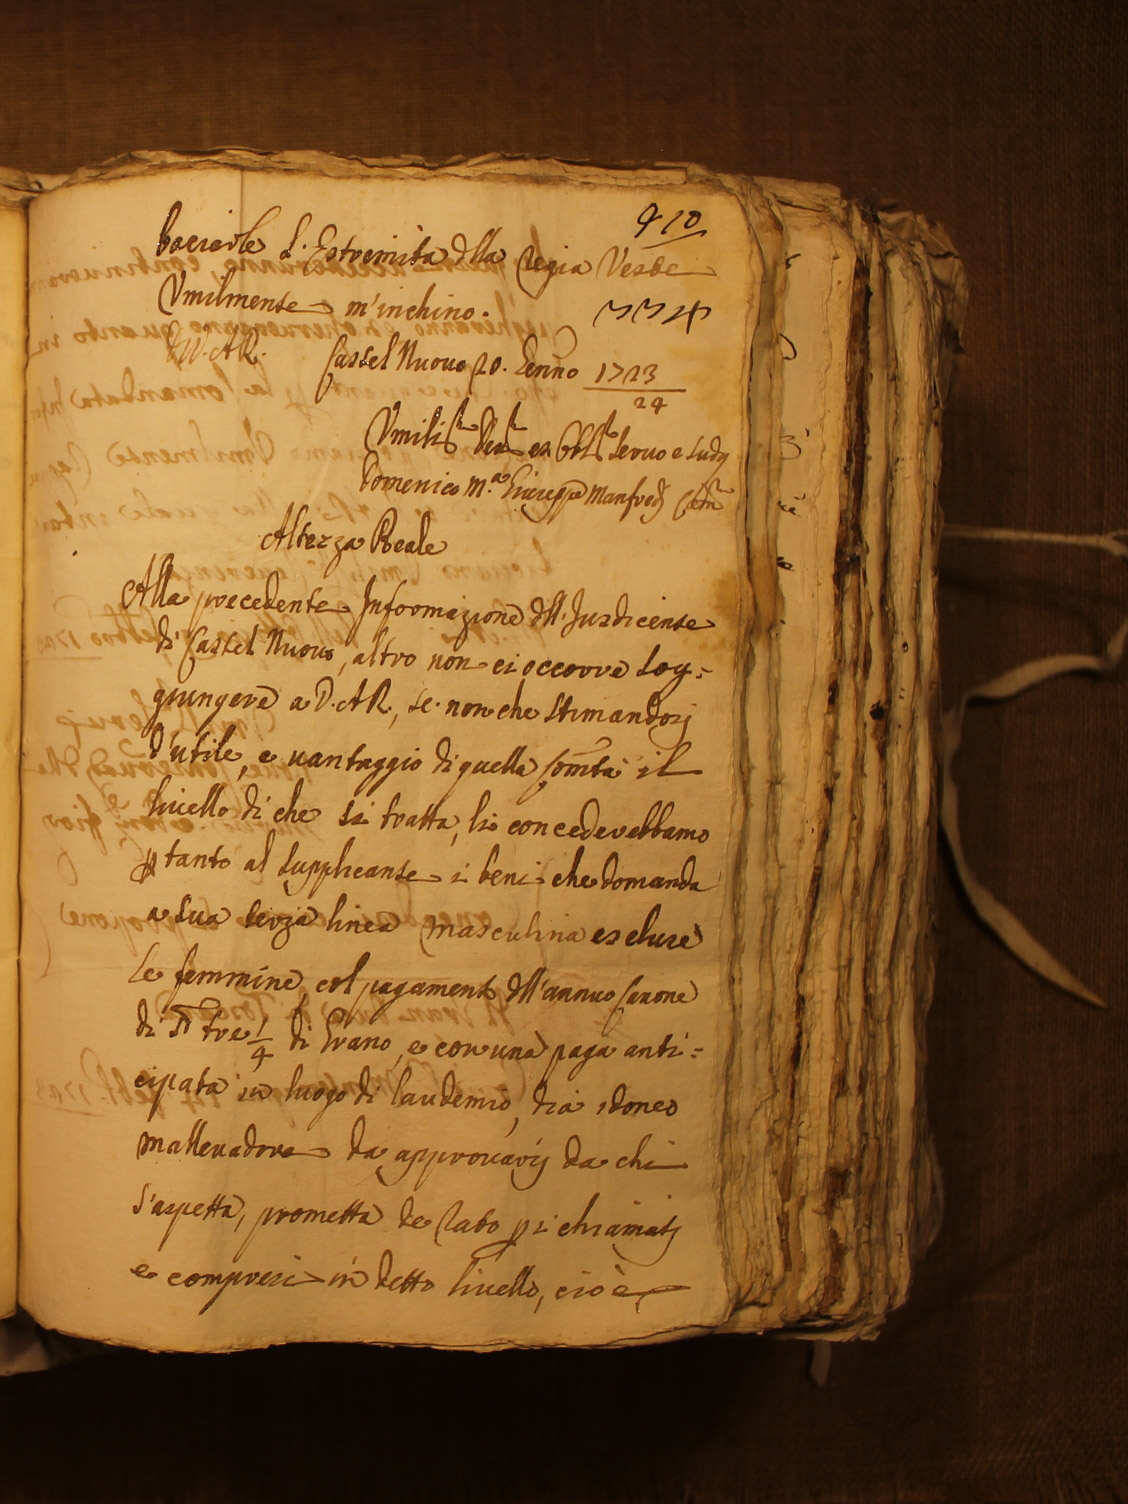 410
baciarle l'Estremita dlla Regia Veste
Umilmente m'inchino.
D.V.A.R. Castel Nuovo 20. Genno 1723
24
Umilis Seruo e Sudo
Domenico M.a Giuseppe Manfredj
Altezza Reale
Alla precedente Informazione dll'Jusdicente
di Castel Nuovo, altro non ci occorre sog=
giungere a V.A.R., se non che stimandosj
d'utile, e vantaggio di quella Comtà il
livello di che si tratta, lo concederebbamo
ptanto al supplicante i beni che domanda
a sua terza linea masculina escluse
le femmine col pagamento dll'annuo Canone
di tre 1/4 di Grano, e con una paga anti=
cipata in luogo di laudemio, dia idoneo
mallevadore da approvarsj da chi
s'aspetta, prometta de rato p i chiamatj
e compresi in detto livello, cioè